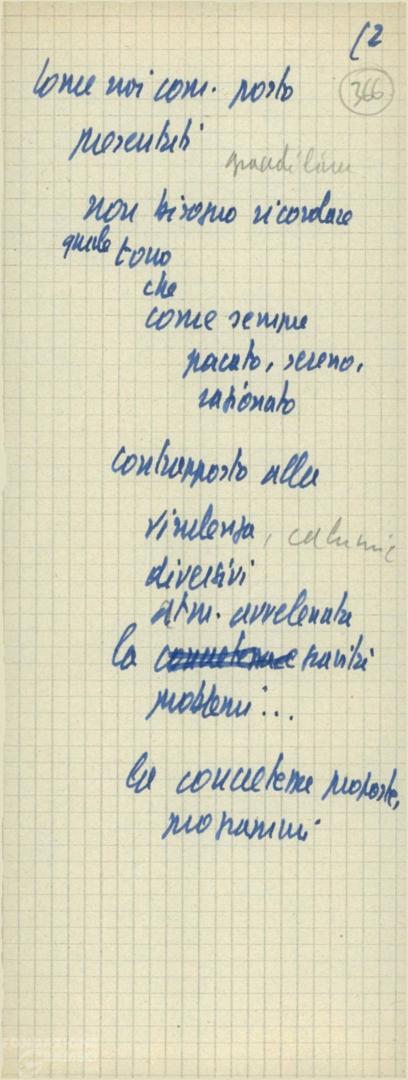 (2
366
Come noi com. posto
presentati
grandi linee
non bisogno ricordare
quale tono
che
come sempre
pacato, sereno,
razionato
contrapposto alla
virulenza, calunnie
diversivi
atm. avvelenata
la concretezza gravità
problemi...
la concretezza proposte,
programmi